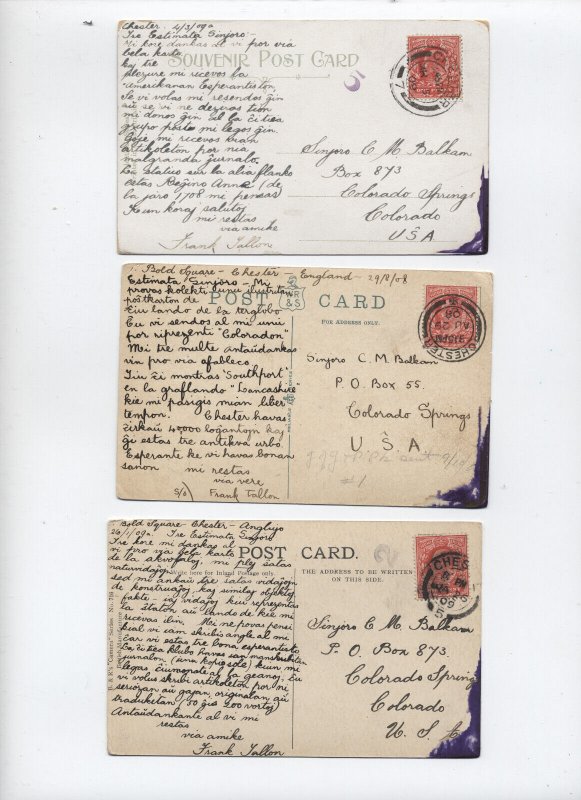 Chester. 4/3/09a
Tre Estimata Sinjoro:-
Mi kore dankas al vi por via
bela karto
kaj tre
SOUVENIR POST CARD
plezure mi ricevos la
amerikanan Esperantiston,
Se vi volas mi resendos ĝin
aŭ se vi ne deziras tion
mi donos ĝin al la ĉi tea
grupo post mi legos ĝin.
mi ricevos vian
artikoleton por nia
malgranda ĵurnalo.
La statuo sur la alia flanko
estas Reĝino Anna (de
la jaro 1708 mi pensas
Kun koraj salutoj
mi restas
via amike
Frank Tallon
5
Sinjoro C M Balkam
Box 873
Colorado Springs
Colorado
USA
1. Bold Square - Chester - England - 29/8/08
Estimata Sinjoro - Mi
provas kolekti unu ilustritan
postkarton de
POST CARD
WR
& S
FOR ADDRESS ONLY.
ĉiu lando de la terglobo
Ĉu vi sendos al mi unu
por riprezenti "Coloradon"
Mi tre multe antaŭdankas
vin pro via afableco
Tiu ĉi montras "Southport"
en la graflando "Lancashire"
kie mi pasigis mian liber
tempon. Chester havas
ĉirkaŭ 40000 loĝantojn kaj
ĝi estas tre antikva urbo.
Esperante ke vi havas bonan
sanon mi restas
via vere
Frank Tallon
CHESTER
AU 29
08
Sinjoro C. M. Balkam
P. O. Box 55.
Colorado Springs
U S A
#1
1 Bold Square - Chester - Anglujo
26/1/09a. Tre Estimata Sinjoro
Tre kore mi dankas al
vi pro via bela karto
POST CARD.
de la akvofaloj. mi plej ŝatas
naturvidaĵojn
THE ADDRESS TO BE WRITTEN
ON THIS SIDE.
sed mi ankaŭ tre ŝatas vidaĵojn
de konstruaĵoj kaj similaj objektoj
fakte - ia vidaĵoj kiu reprezentas
la ŝtaton aŭ lando de kie mi
ricevas ilin. Mi ne povas pensi
kial vi cam skribis angle al mi
ĉar vi estas tre bona esperantisto
La ĉi tiea klubo havas
ĵurnalon (unu kopio sole) kiun mi
legas ĉiumonate al la geanoj. Ĉu
vi volus skribi artikoleton por ni
seriozan aŭ gajan, originalan aŭ
tradukitan (50 ĝis 200 vortoj)
Antaŭdankante al vi mi
restas
via amike
Frank Tallon
Sinjoro C M Balkam
P. O. Box 873.
Colorado Spring
Colorado
U. S. A